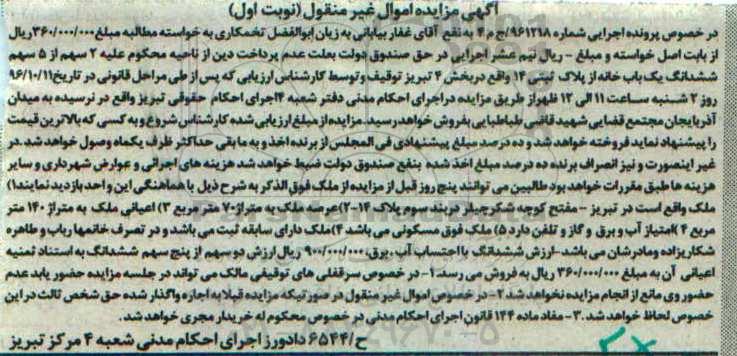 آگهی مزایده اموال غیر منقول (نوبت اول)
در خصوص پرونده اجرایی شماره ۹۶۱۲۱۸/ج م ۴ به نفع آقای غفار بیابانی به زیان ابوالفضل تخمکاری به خواسته مطالبه مبلغ ۳۶۰/۰۰۰/۰۰۰ ریال
از بابت اصل خواسته و مبلغ - ریال نیم عشر اجرایی در حق صندوق دولت بعلت عدم پرداخت دین از ناحیه محکوم علیه ۲ سهم از ۵ سهم
ششدانگ یک باب خانه از پلاک ثبتی ۱۴ واقع در بخش ۴ تبریز توقیف و توسط کارشناس ارزیابی که پس از طی مراحل قانونی در تاریخ ۹۶/۱۰/۱۱
روز ۲ شنبه ساعت ۱۱ الی ۱۲ ظهر از طریق مزایده در اجرای احکام مدنی دفتر شعبه ۴ اجرای احکام حقوقی تبریز واقع در نرسیده به میدان
آذربایجان مجتمع قضایی شهید قاضی طباطبایی بفروش خواهد رسید. مزایده از مبلغ ارزیابی شده کارشناس شروع و به کسی که بالاترین قیمت
را پیشنهاد نماید فروخته خواهد شد و ده درصد مبلغ پیشنهادی فی المجلس از برنده اخذ و به مابقی حداکثر ظرف یکماه وصول خواهد شد. در
غیر اینصورت و نیز انصراف برنده ده درصد مبلغ اخذ شده بنفع صندوق دولت ضبط خواهد شد هزینه های اجرائی و عوارض شهرداری و سایر
هزینه ها طبق مقررات خواهد بود طالبین می توانند پنج روز قبل از مزایده از ملک فوق الذکر به شرح ذیل با هماهنگی این واحد بازدید نمایند ۱)
ملک واقع است در تبریز - مفتح کوچه شکرچیلر دربند سوم پلاک ۱۴-۲) عرصه ملک به متراژ ۷۰ متر مربع ۳) اعیانی ملک به متراژ ۱۴۰ متر
مربع ۴) امتیاز آب و برق و گاز و تلفن دارد ۵) ملک فوق مسکونی می باشد ۴) ملک دارای سابقه ثبت می باشد و در تصرف خانمها رباب و طاهره
شکاریزاده و مادرشان می باشد-ارزش ششدانگ با احتساب آب ،برق، ۹۰۰/۰۰۰/۰۰۰ ریال ارزش دو سهم از پنج سهم ششدانگ به استناد ثمنیه
اعیانی آن به مبلغ ۳۶۰/۰۰۰/۰۰۰ ریال به فروش می رسد. ۱- در خصوص سرقفلی های توقیفی مالک می تواند در جلسه مزایده حضور یابد عدم
حضور وی مانع از انجام مزایده نخواهد شد ۲- در خصوص اموال غیر منقول در صورتیکه مزایده قبلا به اجاره واگذار شده حق شخص ثالث در این
خصوص لحاظ خواهد شد. ۳- مفاد ماده ۱۴۴ قانون اجرای احکام مدنی در خصوص محکوم له خریدار مجری خواهد شد.
ح/۶۵۴۴ دادورز اجرای احکام مدنی شعبه ۴ مرکز تبریز